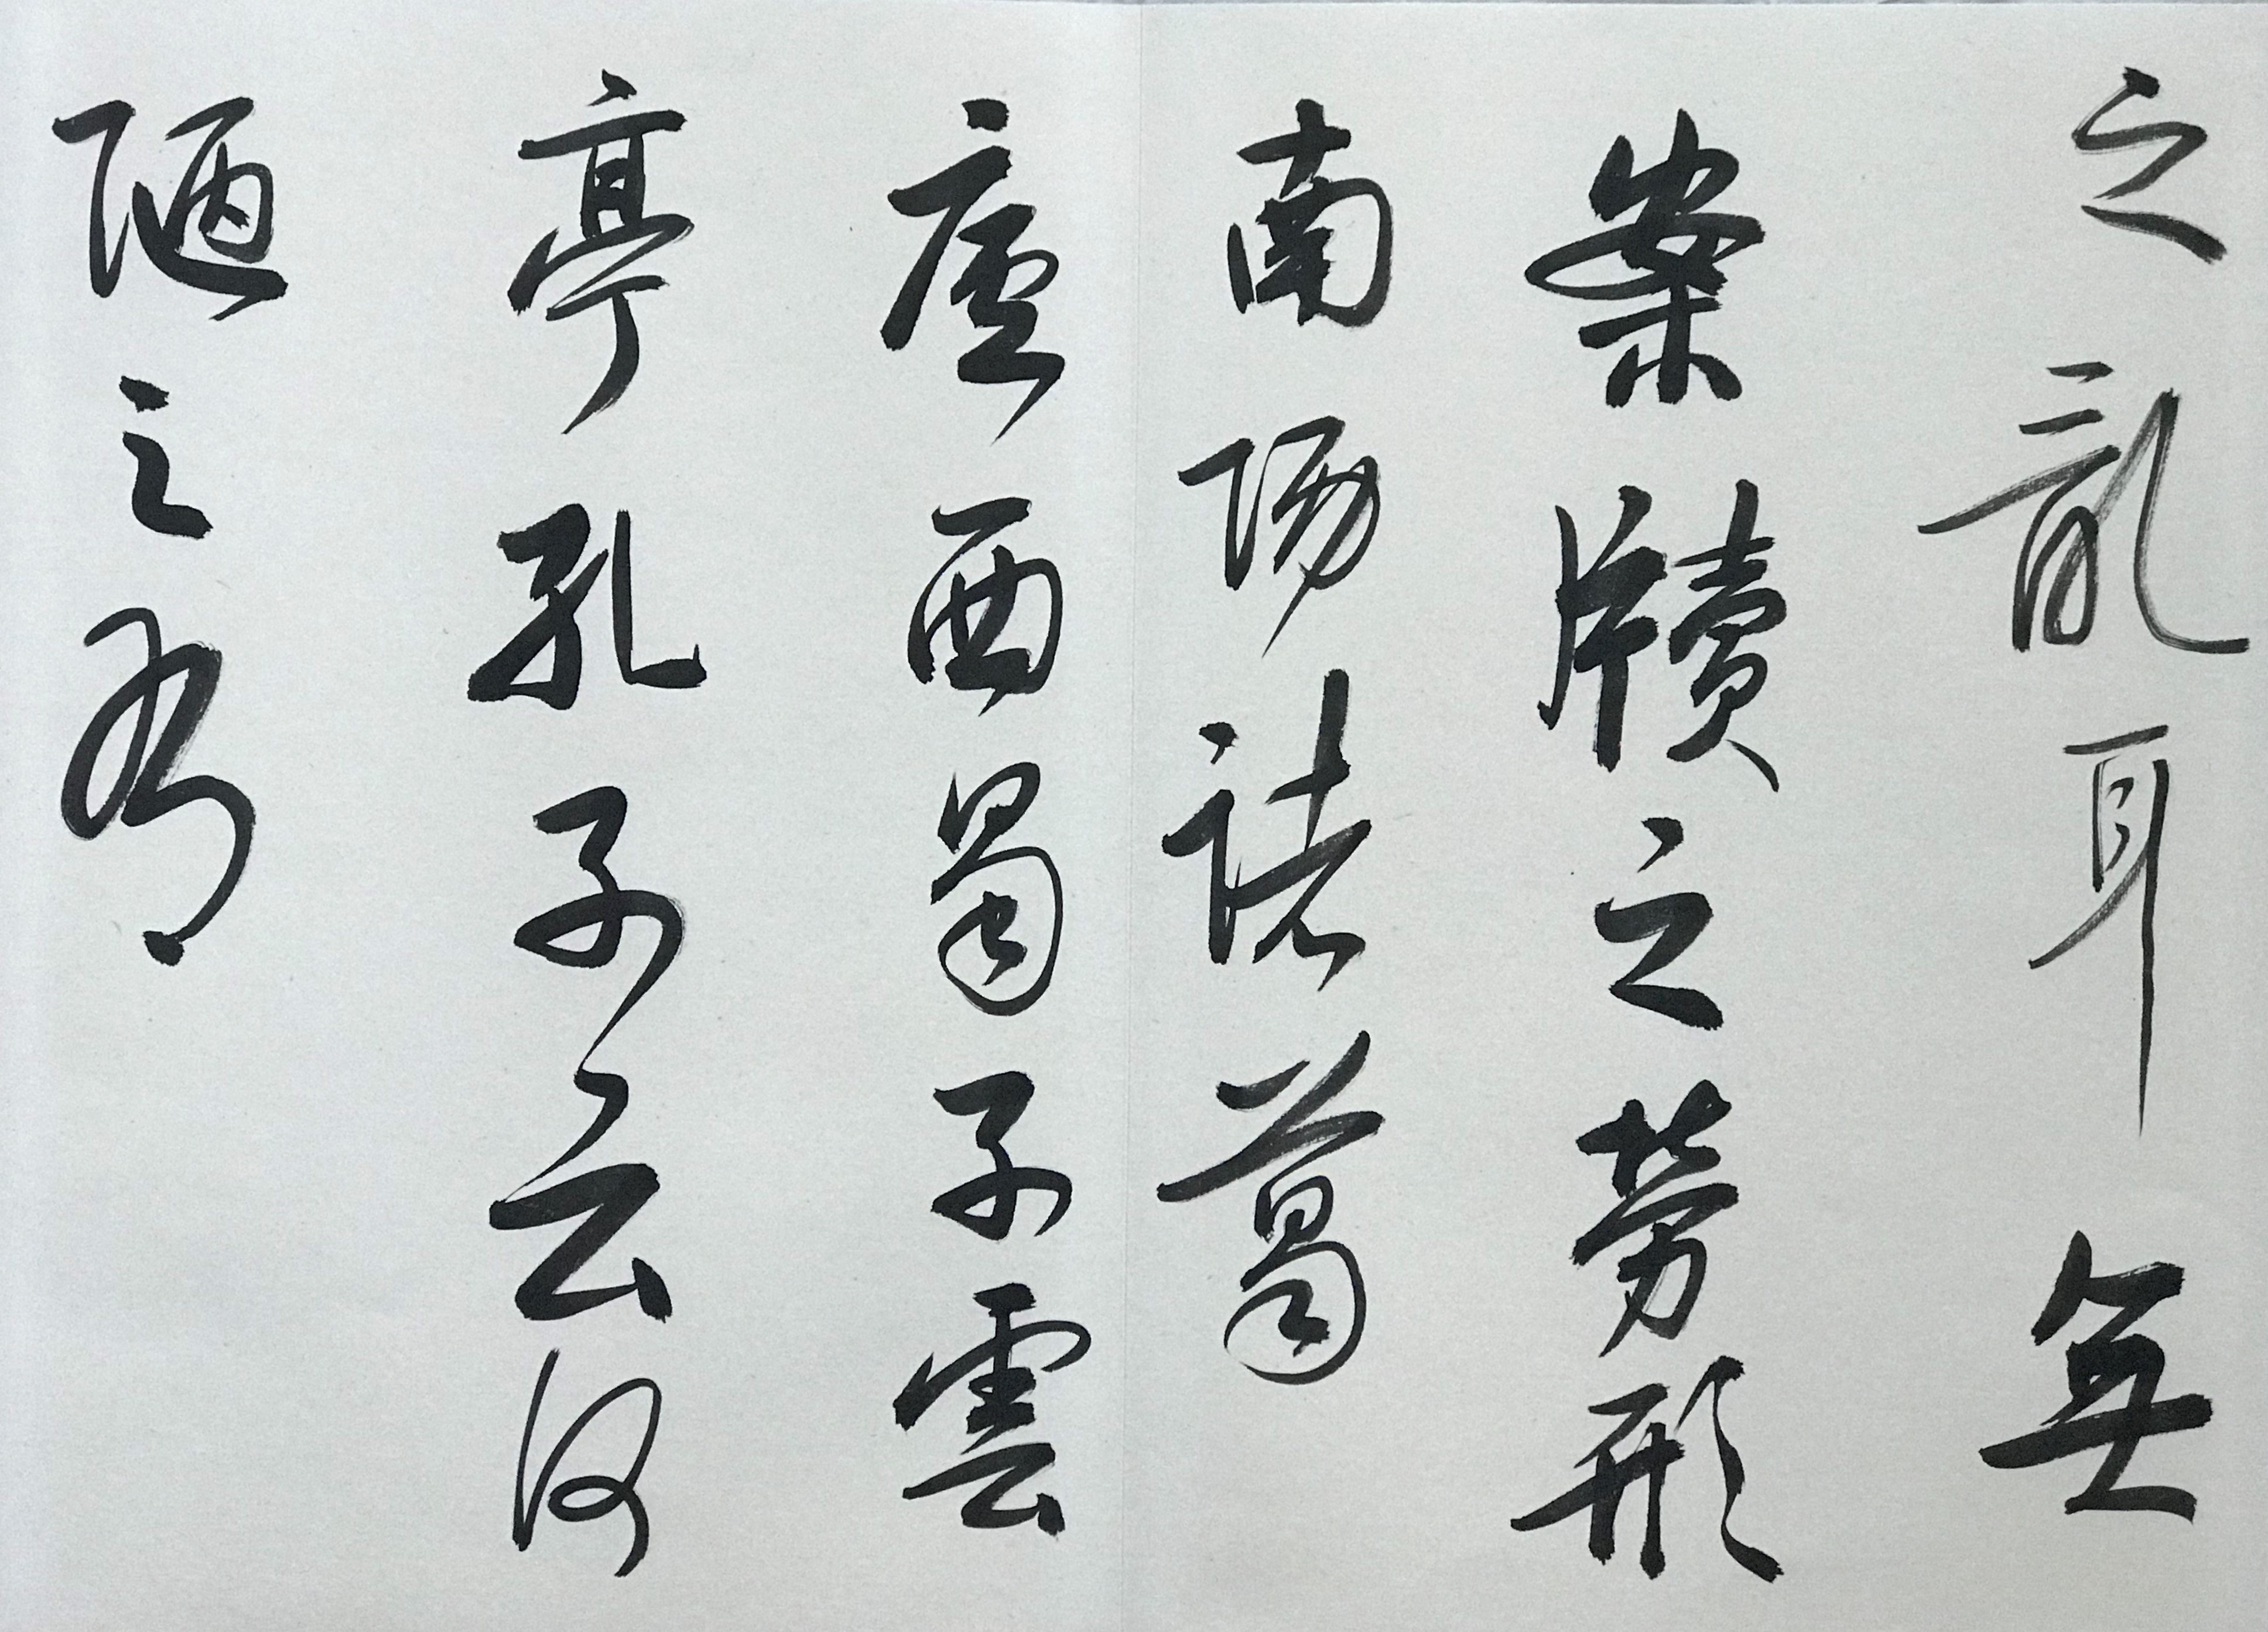 之亂耳無
案牘之勞形
南陽諸葛
廬西蜀子雲
亭孔子云何
陋之有